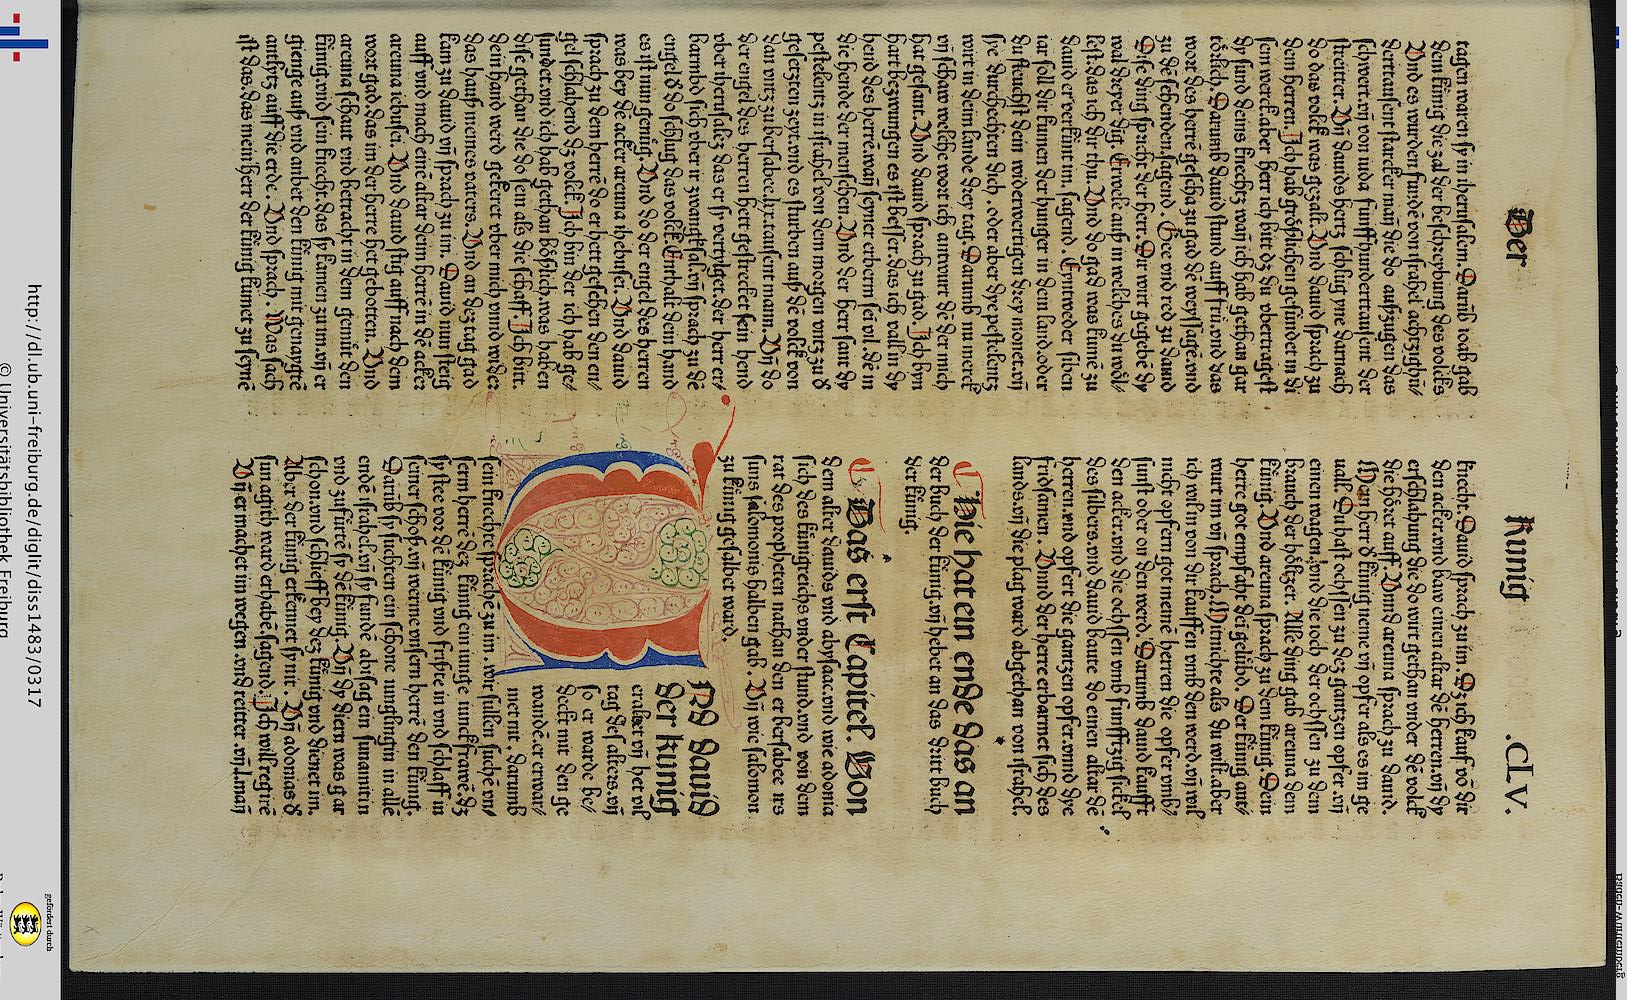 Der Kunig .CLV.
tagen waren sy in iherusalem. Darūb ioab gab
dem künig die zal der beschreybung des volcks
Und es wurden fundē von israhel achtzighūn/
derttausent starcker man die do außzugen das
schwert. vn̄ von iuda funffhunderttausent der
streitter. Vn̄ dauids hertz schlug yne darnach
do das volck was gezalt. Und dauid sprach zu
dem herren. Ich hab größlichen gesündet in di
sem werck. aber herr ich bitt dz du vbertragest
dy sund deins knechtz wan̄ ich hab gethan gar
törlich. Darumb dauid stund auff frü. vnd das
wort des herrē geschach zu gad dē weyssagē. vnd
zu dē sehenden. sagend. Gee vnd red zu dauid
Dise ding spricht der herr. Dir wirt gegebē dy
wal dreyer ding. Erwele auß in welches du wöl/
lest. das ich dir thu. Und do gad was kumē zu
dauid er verkünt im. sagend. Eyntweder siben
iar soll dir kumen der hunger in dem land. oder
du fleuchst dein widerwertigen drey monet. vn̄
sye durchechten dich. oder aber dye pestelentz
wirt in deim lande drey tag. Darumb nu merck
vn̄ schaw welche wort ich antwurt dē der mich
hat gesant. Und dauid sprach zu gad. Ich byn
hart bezwungen es ist besser. das ich vall in dy
hend des herrē. wan̄ seyner erbermd sei vil. dē in
die hende der menschen. Und der herr sant dy
pestelentz in israhel von dem morgen vntz zu d
gesetzten zeyt. vnd es sturben auß dē volck von
dan vntz zu bersabee. lxx. tausent mann. Vn̄ do
der engel des herren hett gestrecket sein hend
vber iherusalez das er sy vertylget. der herr er/
barmbd sich vber ir zwangksal. vn̄ sprach zu dē
engel d do schlug das volck. Enthalt dein hand
es ist nun genüg. Und do der engel des herren
was bey dē acker areuna ihebusei. Und dauid
sprach zu dem herrē do er hett gesehen den en/
gel schlahend dz volck. Ich bin der ich hab ge/
sündet. vnd ich hab gethan böslich. was haben
dise gethan die do sein als die schaff. Ich bitt.
dein hand werd gekeret vber mich vnnd wdez
das hauß meines vaters. Und an dez tag gad
kam zu dauid vn̄ sprach zu im. David nun steig
auff vnd mach eine altar dem herrē in dē acker
areuna iebusei. Und dauid stig auff nach dem
wort gad das im der herre het gebotten. Und
areuna schaut vnd betracht in dem gemüt den
künig. vnd sein knecht. das sy kamen zu im. vn̄ er
gienge auß vnd anbet den künig mit genaygtē
antlytz auff die erde. Und sprach. Was sach
ist das. das mein herr der künig kumet zu seyne
knecht. Dauid sprach zu im. Dz ich kauf vō dir
den acker. vnd baw einen altar dē herren. vn̄ dy
erschlahung die do wirt gethan vnder dē volck
die höret auff. Und areuna sprach zu dauid.
Mein herr d künig neme vn̄ opfer als es im ge
uall. Du hast ochssen zu dez gantzen opfer. vn̄
einen wagen. vnd die ioch der ochssen zu dem
brauch der höltzer. Alle ding gab areuna dem
künig. Und areuna sprach zu dem künig. Dein
herre got empfaht dei gelübd. Der künig ant/
wurt im vn̄ sprach. Mitnichte als du wilt. aber
ich wil in von dir kauffen vmb den werd. vn̄ wil
nicht opfern got meinē herren die opfer vmb/
sunst oder on den werd. Darumb dauid kaufft
den acker. vnd die ochssen vmb funfftzig sickel
des silbers. vnd dauid baute do einen altar dē
herren. vnd opfert die gantzen opfer. vnnd dye
fridsamen. Unnd der herre erbarmet sich des
lands. vn̄ die plag ward abgethan von israhel.
Hie hat ein ende das an
der buch der künig. vn̄ hebet an das dritt buch
der künig.
Das erst Capitel. Von
dem alter dauids vnd abysaac. vnd wie adonia
sich des künigreichs vnderstund. vnd von dem
rat des propheten nathan den er bersabee irs
suns salomons halben gab. Vn̄ wie salomon
zu künig gesalbet ward.
UNd dauid
der künig
eraltet vn̄ het vil
tag des alters. vn̄
so er warde be/
deckt mit den ge
wandē er erwar/
met nit. darumb
sein knechte sprachē zu im. wir sullen suchē vn/
serm herrē dez künig ein iunge iunckfrawē. dz
sy stee vor dē künig vnd frist in vnd schlaff in
seiner schoß. vn̄ werme vnsern herrē den künig.
Darūb sy suchten ein schone iunglingin in allē
endē israhel. vn̄ sy fundē abisag ein sunamitin
vnd zufürtē sy dē künig. Vn̄ dy diern was gar
schon. vnd schlieff bey dez künig vnd dienet im.
Aber der künig erkennet sy nit. Vn̄ adonias d
sun agith ward erhabē. sagend. Ich will regirē
Vn̄ er machet im wegen. vnd reitter. vn̄ .l. man̄
http://dl.ub.uni-freiburg.de/diglit/diss1483/0317
© Universitätsbibliothek Freiburg
gefördert durch